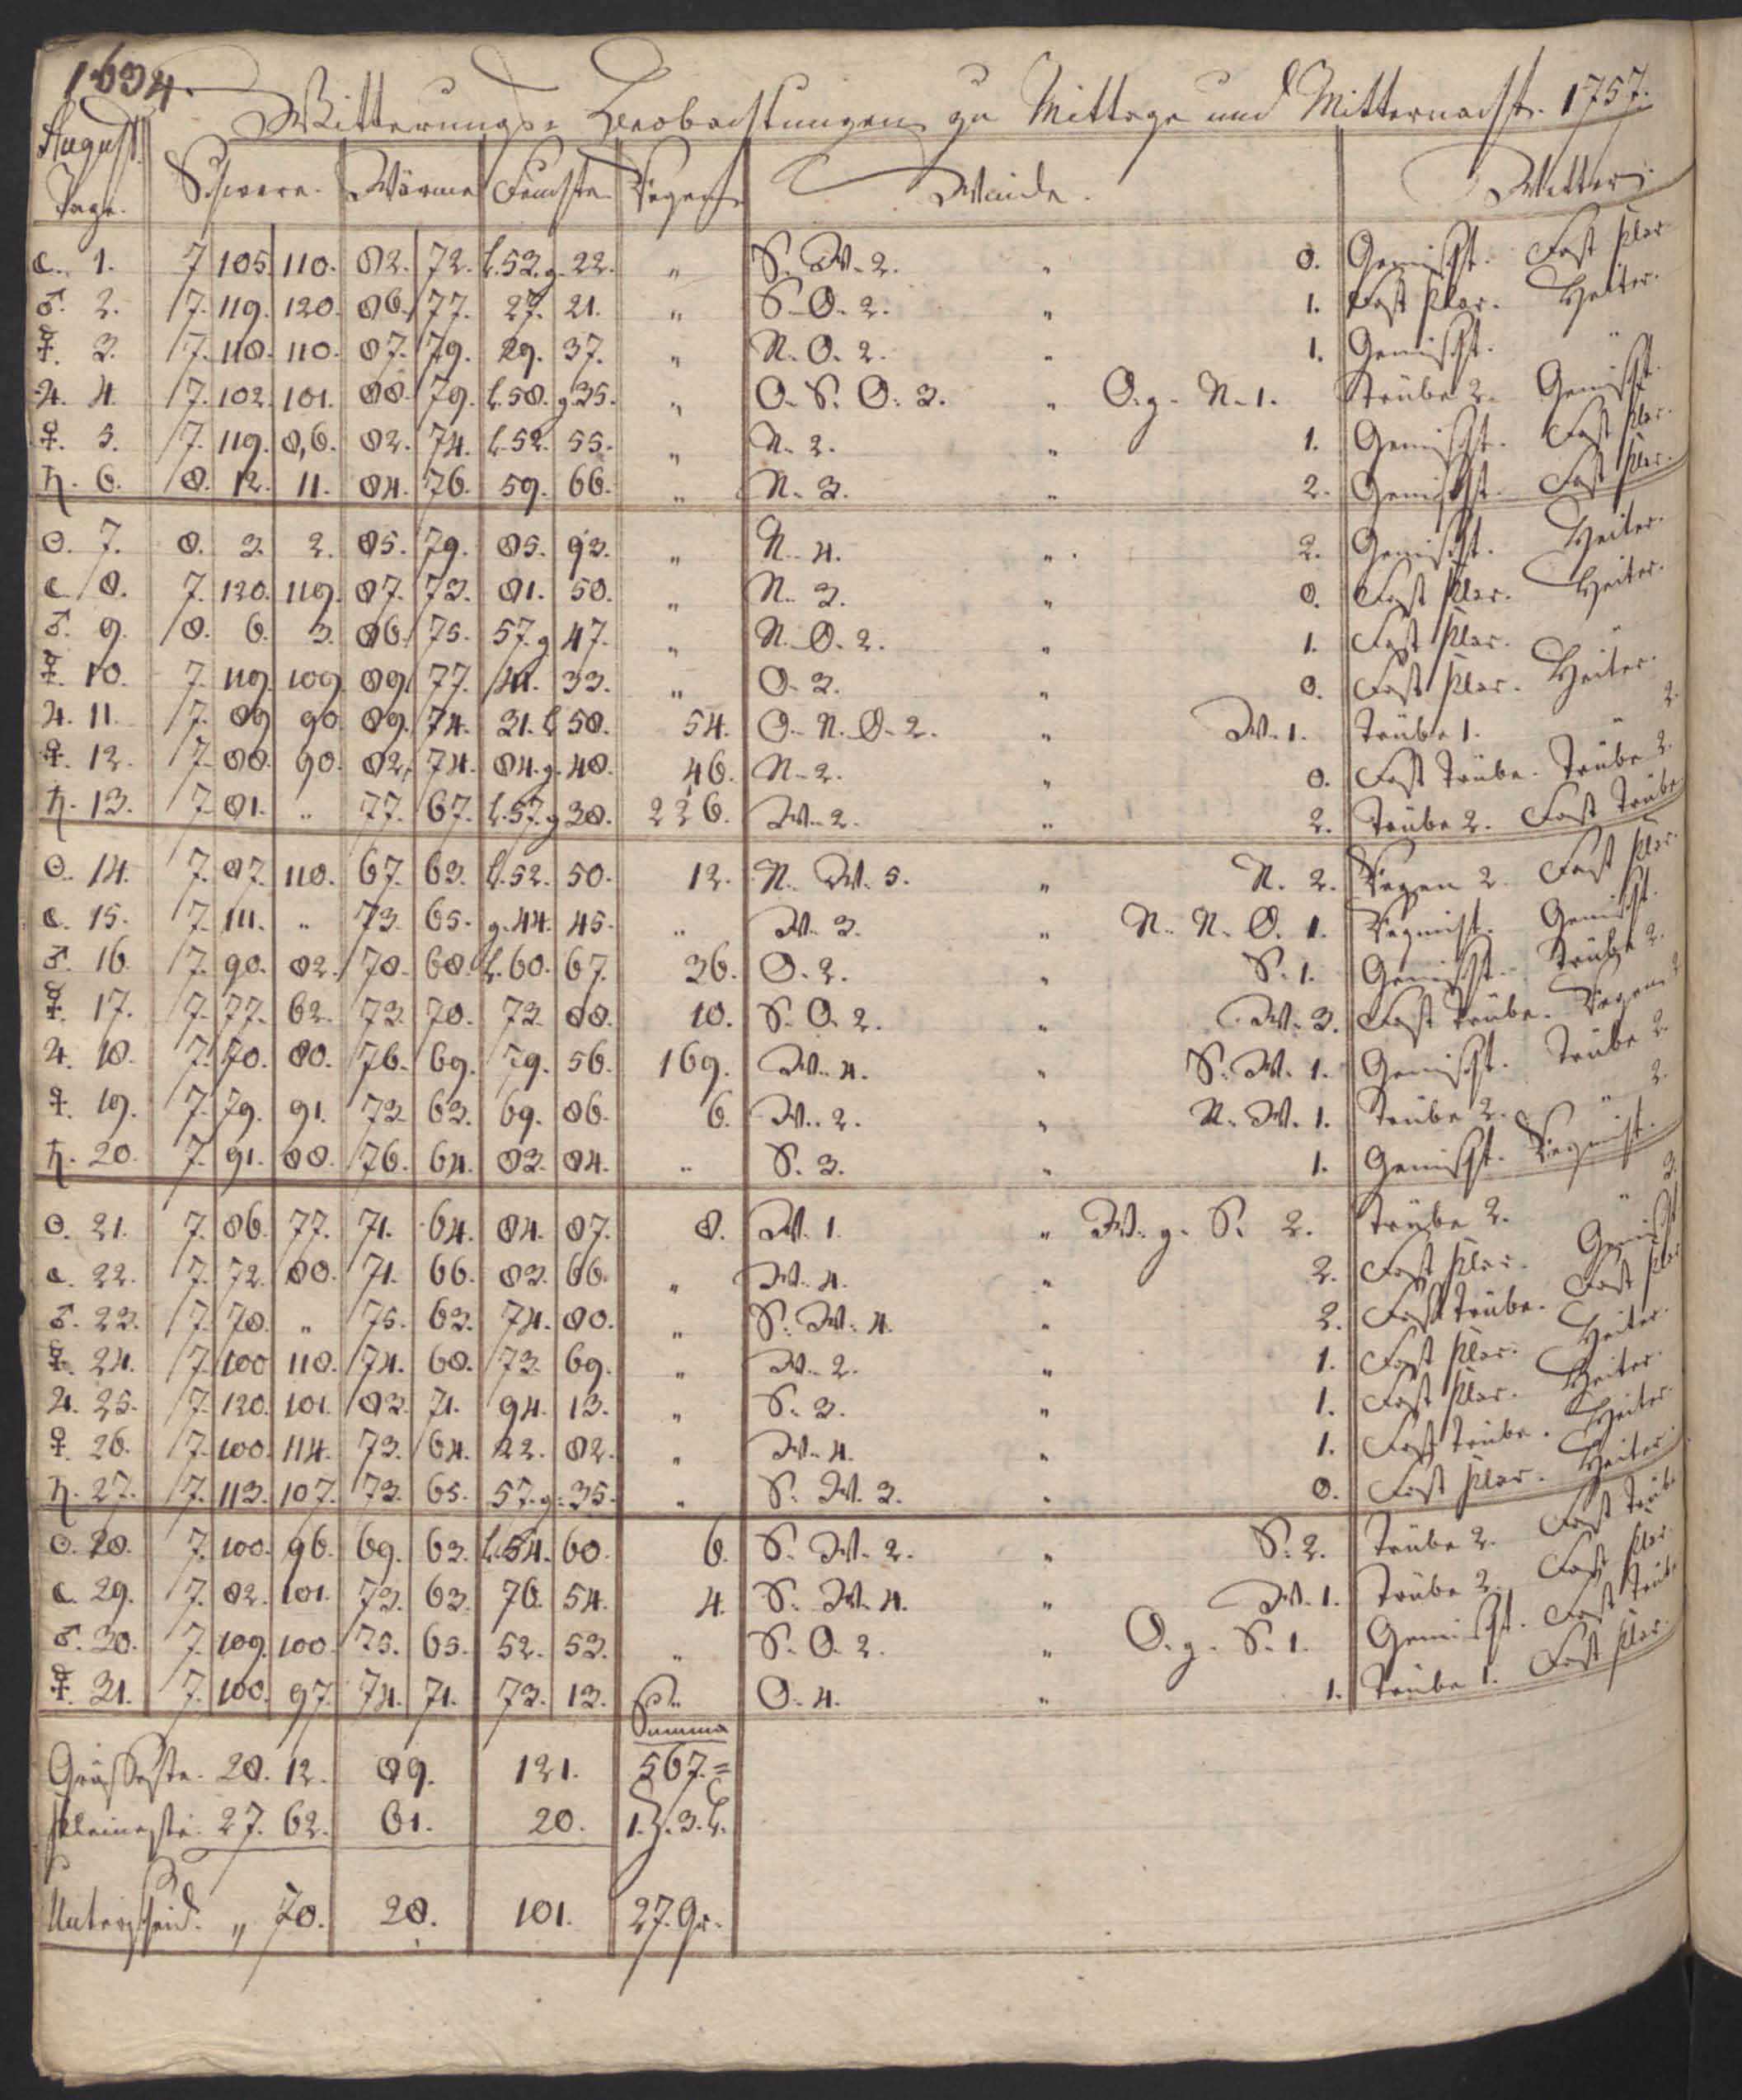 1634.
Witterungs- Beobachtungen zu Mittage und Mitternacht. 1757.
August.
Tage. Schwere. Wärme Feuchte Regen Winde. Wetter.
☾. 1. 7 105. 110. 82. 72. l.53. g. 22. „ S. W. 2. „ 0. Gemischt. Fast klar.
♂. 2. 7. 119. 120. 86. 77. 27. 21. „ S. O. 2. „ 1. Fast klar. Heiter.
☿. 3. 7. 118. 110. 87. 79. 29. 37. „ N. O. 2. „ 1. Gemischt. „
♃. 4. 7. 102. 101. 88. 79. l.58. g.35. „ O. S. O. 3. „ O. g. N. 1. Trübe 2. Gemischt.
♀. 5. 7. 119. 8,6. 82. 74. l.52. 55. „ N. 2. „ 1. Gemischt. Fast klar.
♄. 6. 8. 12. 11. 84. 76. 59. 66. „ N. 3. „ 2. Gemischt. Fast klar.
☉. 7. 8. 3. 2. 85. 79. 85. 93. „ N. 4. „ 2. Gemischt. Heiter.
☾. 8. 7. 120. 119. 87. 73. 81. 50. „ N. 3. „ 0. Fast klar. Heiter.
♂. 9. 8. 6. 3. 86. 75. 57. g. 47. „ N. O. 2. „ 1. Fast klar. „
☿. 10. 7. 119. 109. 89. 77. 41. 33. „ O. 3. „ 0. Fast klar. Heiter.
♃. 11. 7. 89 90. 89. 74. 31. l 58. 54. O. N. O. 2. „ W. 1. Trübe 1. „ 2.
♀. 12. 7. 88. 90. 82. 74. 84. g. 48. 46. N. 2. „ 0. Fast Trübe. Trübe 2.
♄. 13. 7. 81. „ 77. 67. l.57. g 38. 226. W. 2. „ 2. Trübe 2. Fast Trübe.
☉. 14. 7. 87. 110. 67. 63. l.52. 50. 12. N. W. 5. „ N. 2. Regen 2. Fast klar.
☾. 15. 7. 111. „ 73. 65. g. 44. 45. „ W. 3. „ N. N. O. 1. Regmist. Gemischt.
♂. 16. 7. 90. 82. 78. 68. l. 60. 67. 36. O. 2. „ S. 1. Gemischt. Trübe 2.
☿. 17. 7. 77. 62. 73. 70. 73. 88. 10. S. O. 2. „ W. 3. Fast Trübe. Regen 2
♃. 18. 7. 70. 80. 76. 69. 79. 56. 169. W. 4. „ S. W. 1. Gemischt. Trübe 2.
♀. 19. 7. 79. 91. 73. 63. 69. 86. 6. W. 2. „ N. W. 1. Trübe 2. „ 2.
♄. 20. 7. 91. 88. 76. 64. 83. 84. „ S. 3. „ 1. Gemischt. Regmist.
☉. 21. 7. 86. 77. 71. 64. 84. 87. 8. W. 1. „ W. g. S. 2. Trübe 2. „ 3.
☾. 22. 7. 72. 80. 71. 66. 83. 66. „ W. 4. „ 2. Fast klar. Gemischt
♂. 23. 7. 78. „ 75. 63. 74. 80. „ S. W. 4. „ 2. Fast Trübe. Fast klar
☿. 24. 7. 100 118. 74. 68. 73. 69. „ W. 2. „ 1. Fast klar. Heiter.
♃. 25. 7. 120. 101. 83. 71. 94. 13. „ S. 3. „ 1. Fast klar. Heiter.
♀. 26. 7. 100. 114. 73. 64. 22. 82. „ W. 4. „ 1. Fast Trübe. Heiter.
♄. 27. 7. 113. 107. 73. 65. 57. g. 35. „ S. W. 3. „ 0. Fast klar. Heiter.
☉. 28. 7. 100. 96. 69. 63. l.54. 60. 6. S. W. 2. „ S. 2. Trübe 2. Fast Trübe
☾. 29. 7. 82. 101. 73. 63. 76. 54. 4. S. W. 4. „ W. 1. Trübe 2. Fast klar.
♂. 30. 7. 109. 100. 75. 65. 52. 53. „ S. O. 2. „ O. g. S. 1. Gemischt. Fast Trübe
☿. 31. 7. 100. 97. 74. 71. 73. 13. „ O. 4. „ 1. Trübe 1. Fast klar.
Summa
Grösseste. 28. 12. 89. 121. 567. =
Kleineste. 27. 62. 61. 20. 1. Z. 3. L.
Unterscheid. „ 70. 28. 101. 27. Gr.